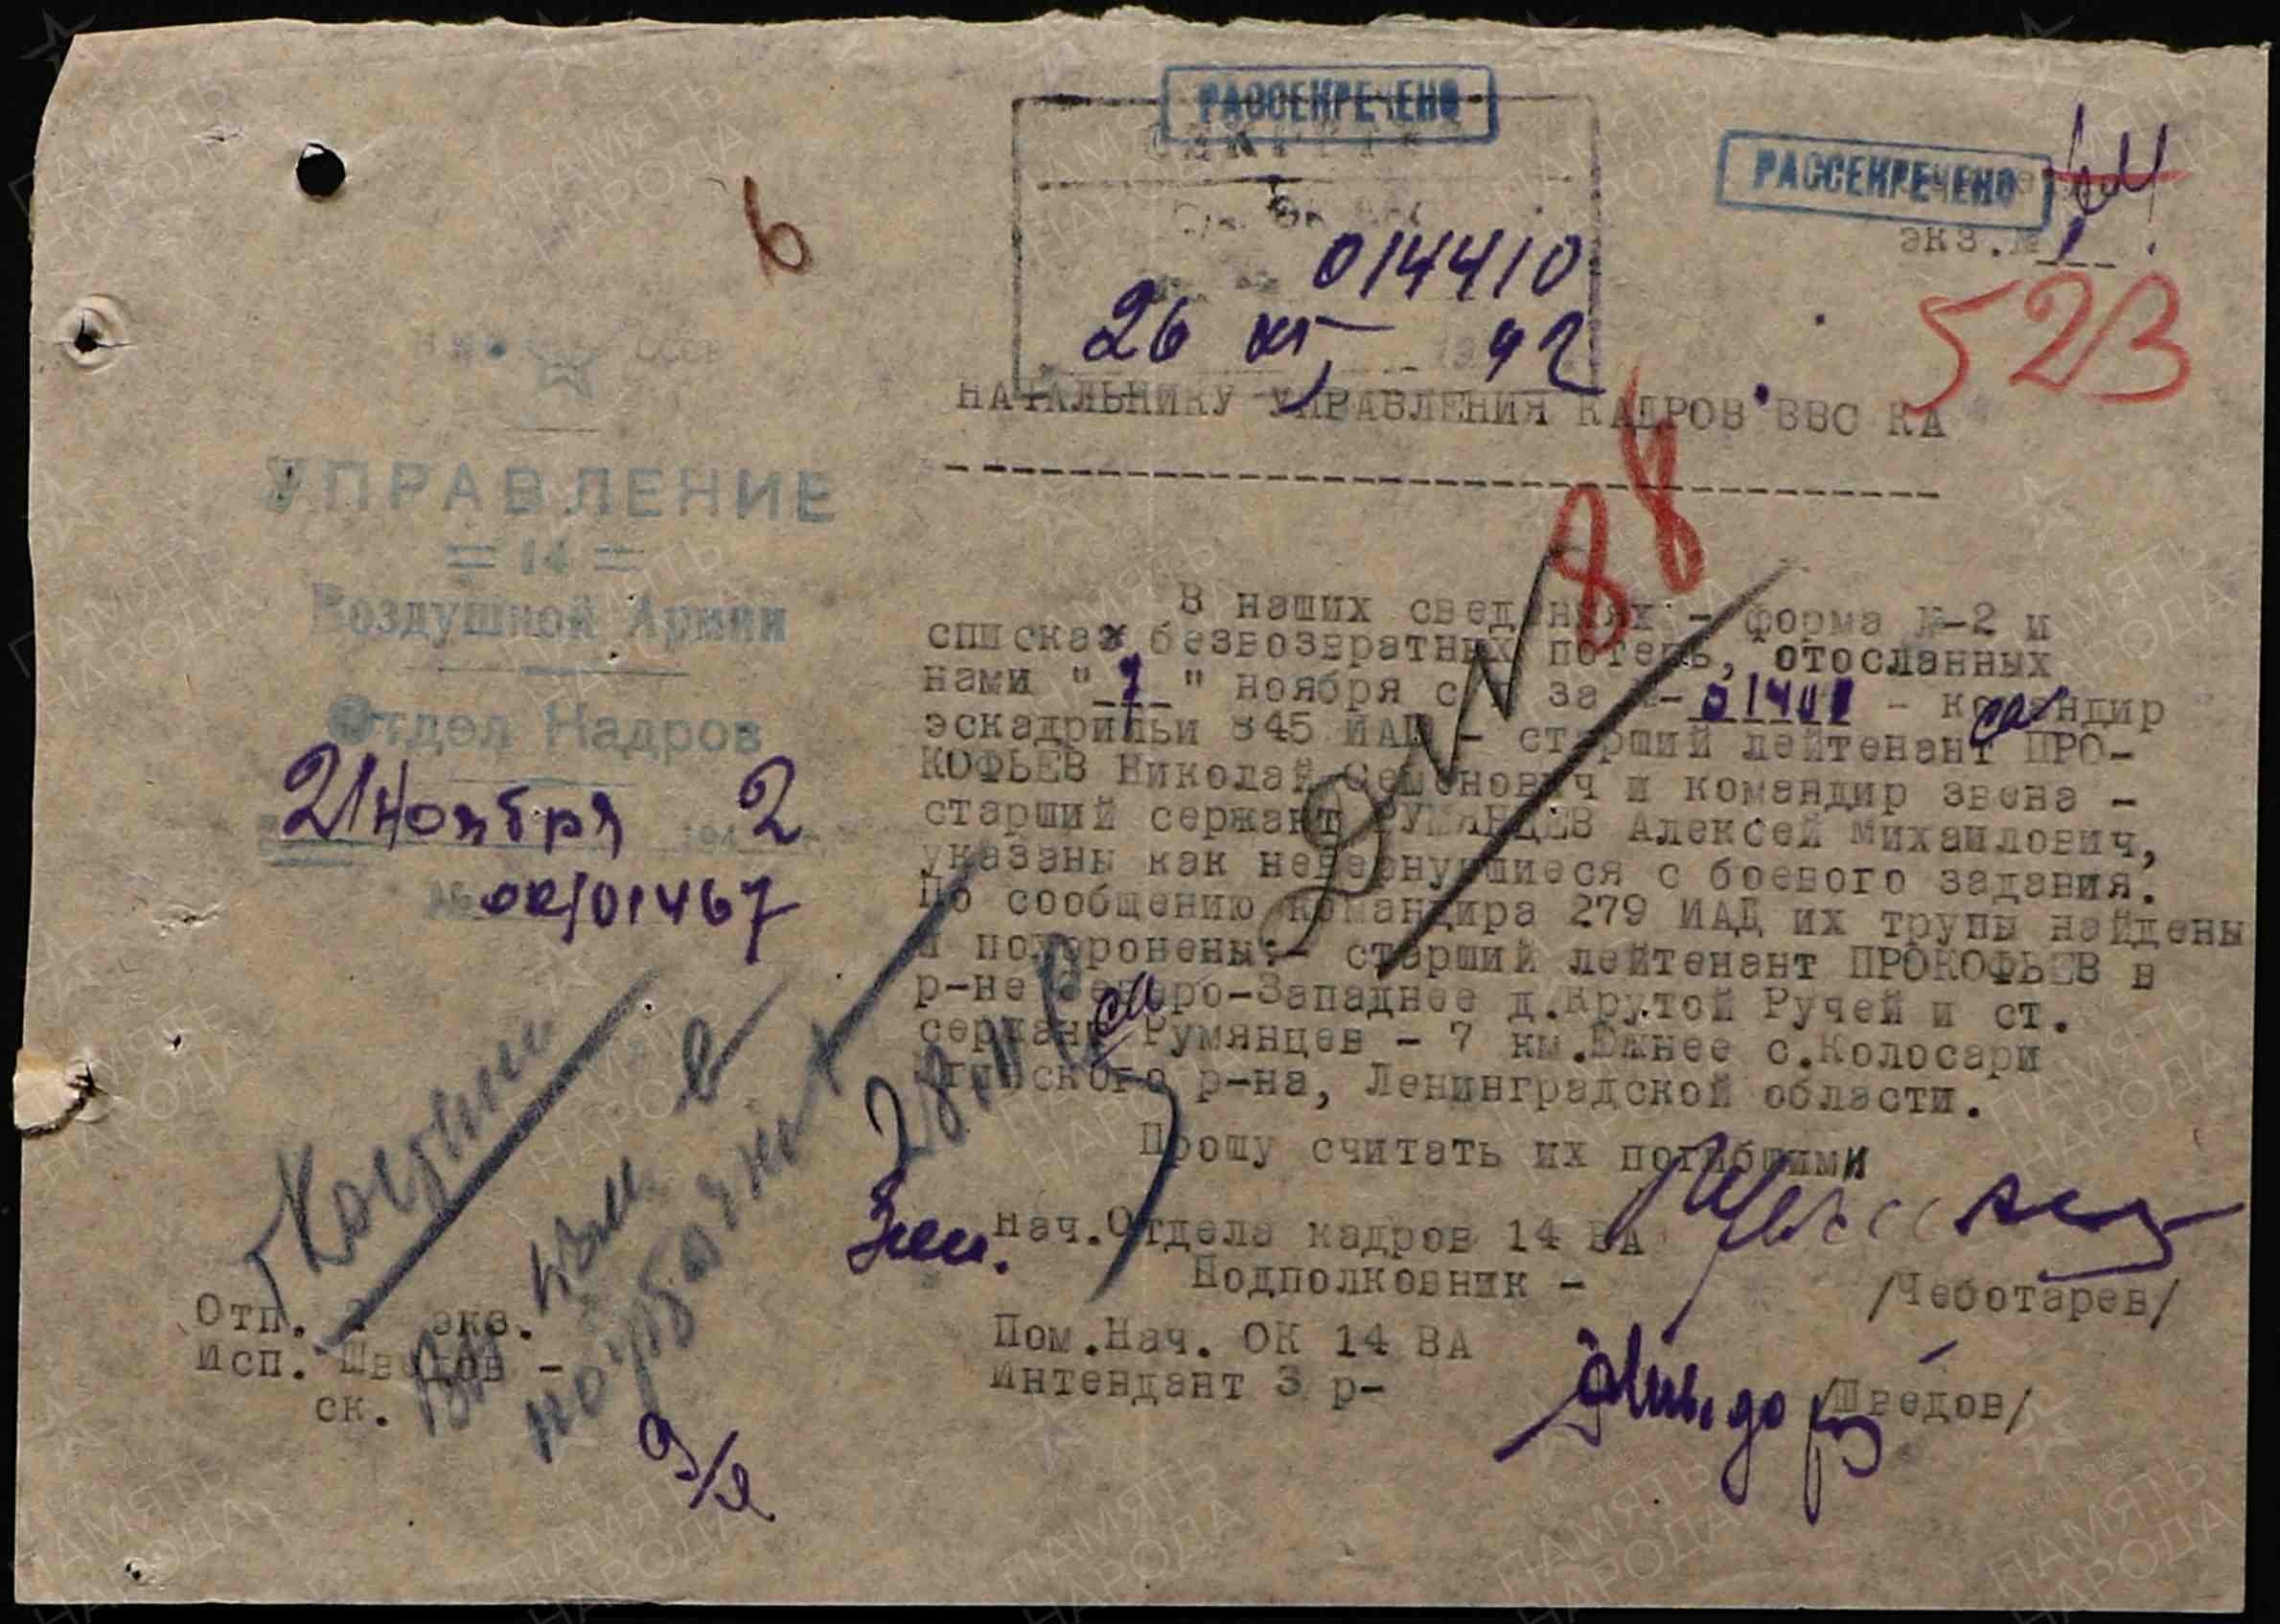 РАССЕКРЕЧЕНО
РАССЕКРЕЧЕНО
экз.№ 1
6
014410
26 XI 42
523
НАЧАЛЬНИКУ УПРАВЛЕНИЯ КАДРОВ ВВС КА
88
УПРАВЛЕНИЕ
= 14 =
Воздушной Армии
Отдел Кадров
21 ноября 1942
№ ок/01467
В наших сведениях - форма №-2 и
списках безвозвратных потерь, отосланных
нами "7" ноября с.г. за №- - командир
эскадрильи 845 ИАП - старший лейтенант ПРО-
КОФЬЕВ Николай Семенович и командир звена -
старший сержант РУМЯНЦЕВ Алексей Михаилович,
указаны как невернувшиеся с боевого задания.
По сообщению командира 279 ИАД их трупы найдены
и похоронены:- старший лейтенант ПРОКОФЬЕВ в
р-не Северо-Западнее д.Крутой Ручей и ст.
сержант Румянцев - 7 км.Южнее с.Колосари
р-на, Ленинградской области.
Прошу считать их погибшими
28.11
Зам.
Нач.Отдела кадров 14 ВА
Подполковник -
/Чеботарев/
Пом.Нач. ОК 14 ВА
Интендант 3 р-
/Шведов/
Отп. экз.
Исп. Шведов -
ск.